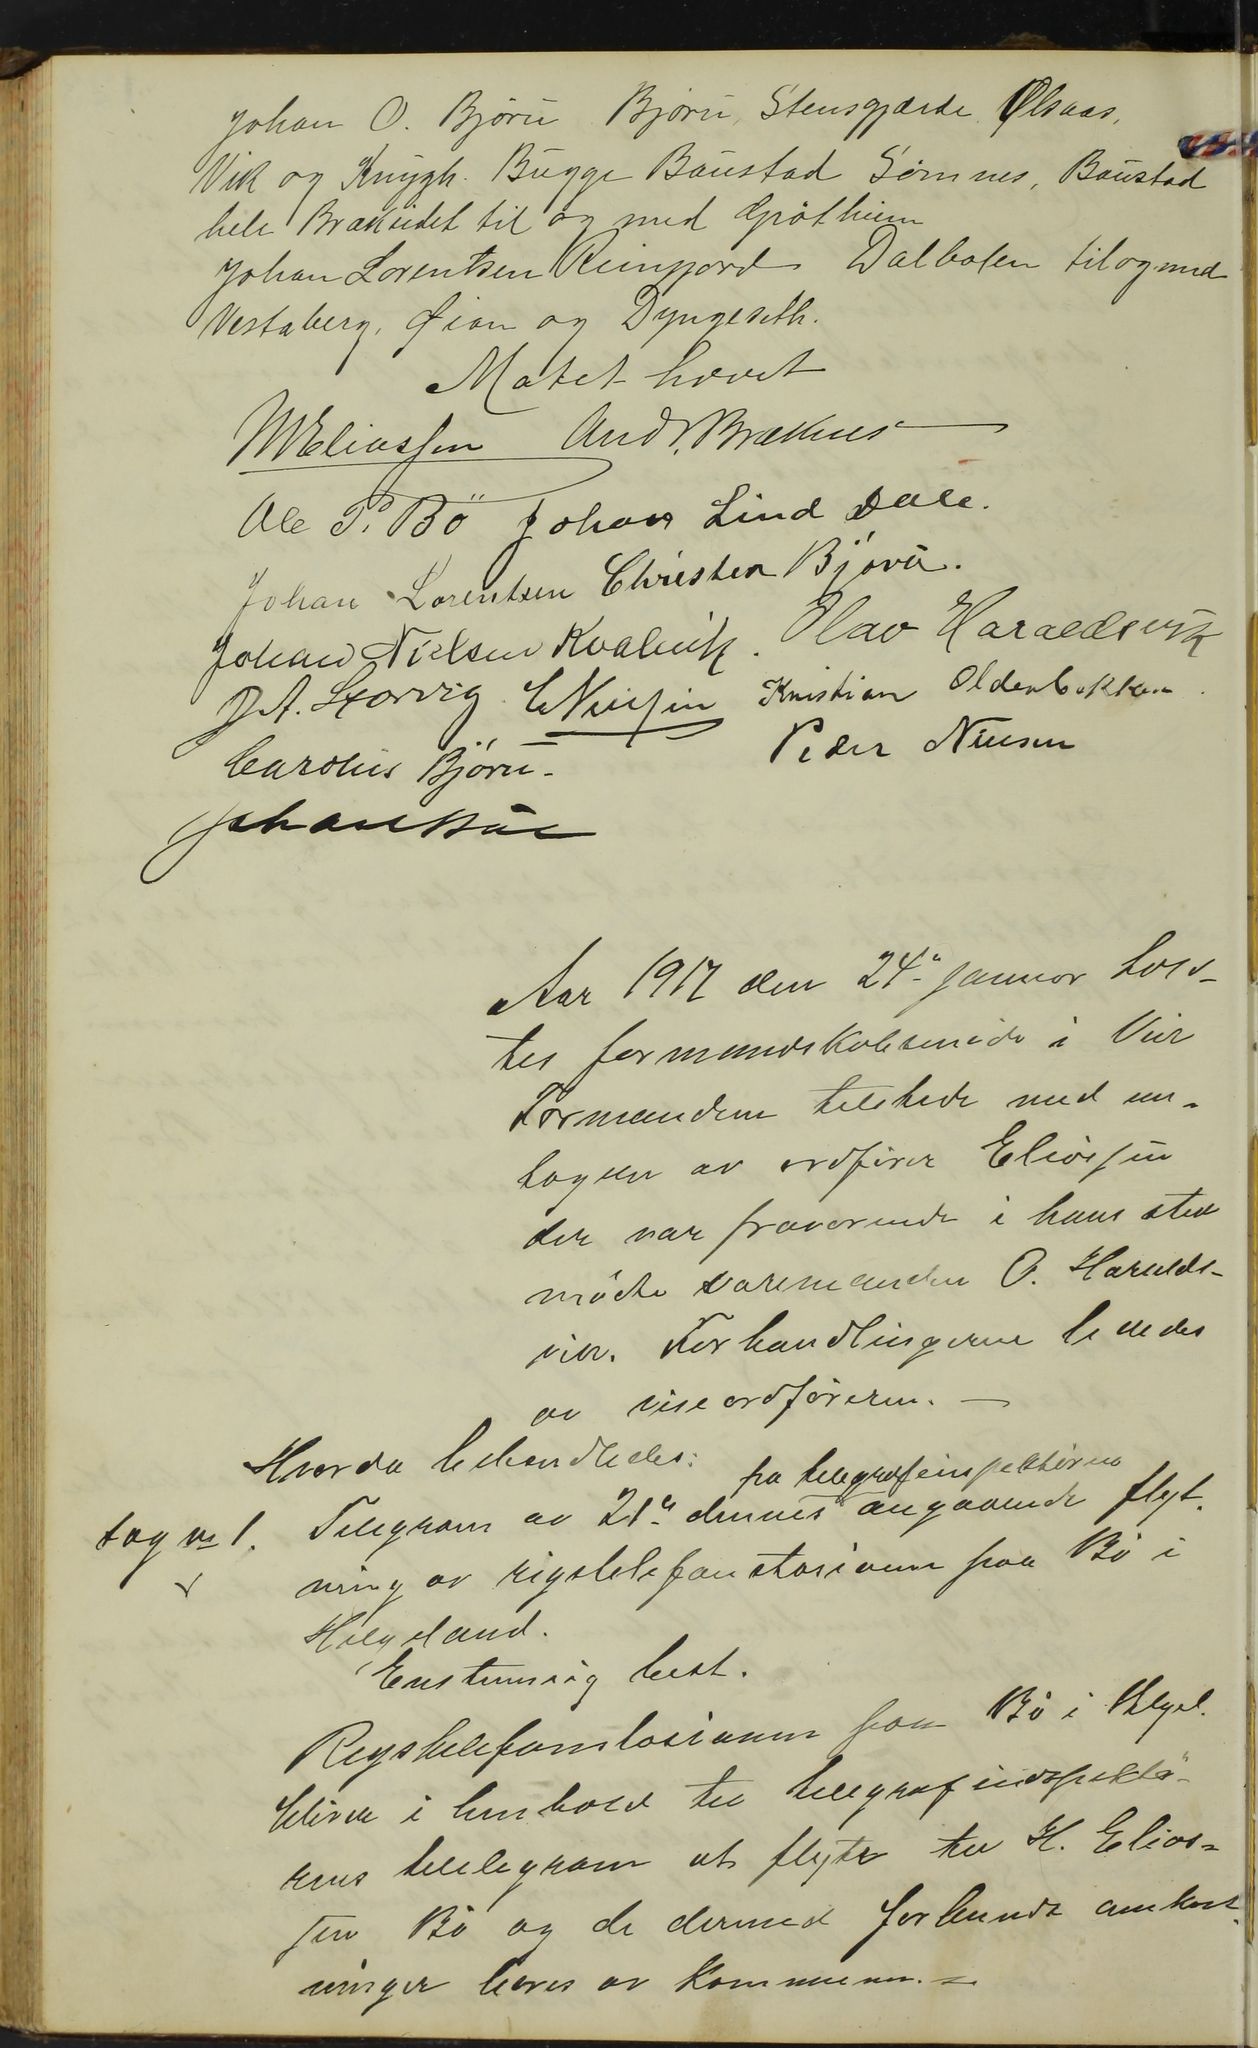 Johan O. Bjørn Bjørn, Stensgjærde, Olsaas,
Vik og Knygh. Bugge Baustad Sømnes, Baustad
hele Bræksidet til og med Grøtheim
Johan Lorentsen Reinfjord Dalboten til og med
Vestaberg, Øian og Dyngeseth.
Møtet hævet
M Eliassen And. Brækkus
Ole P. Bö Johan Lind Dale.
Johan Lorentsen Christen Bjørn.
Johan Nielsen Kvalvik. Olav Haraldsvik
J A. Storvig E Nielsen Kristian Oldenbakken.
Carolius Bjørn. Peder Nilsen
Johan
Aar 1917 den 24de januar hold-
tes formandskabsmøde i Vik
Formændene tilstede med un-
tagen av ordfører Eliassen
der var fraværende i hans sted
mødte varemanden O. Haralds-
vik. Forhandlingerne lededes
av viseordføreren. —
Hvorda behandledes:
fra telegrafinspektøren
Sag no 1. Telegram av 21de dennes angaaende flyt-
ning av rigstelefonstasionen paa Bö i
Helgeland.
Enstemmig besl.
Rigstelefonstasionen paa Bö i Helgel.
bliver i henhold til telegrafindspektø-
rens telelegram at flytte til H. Elias-
sen Bö og de dermed forbundne omkost-
ninger bæres av kommunen. —